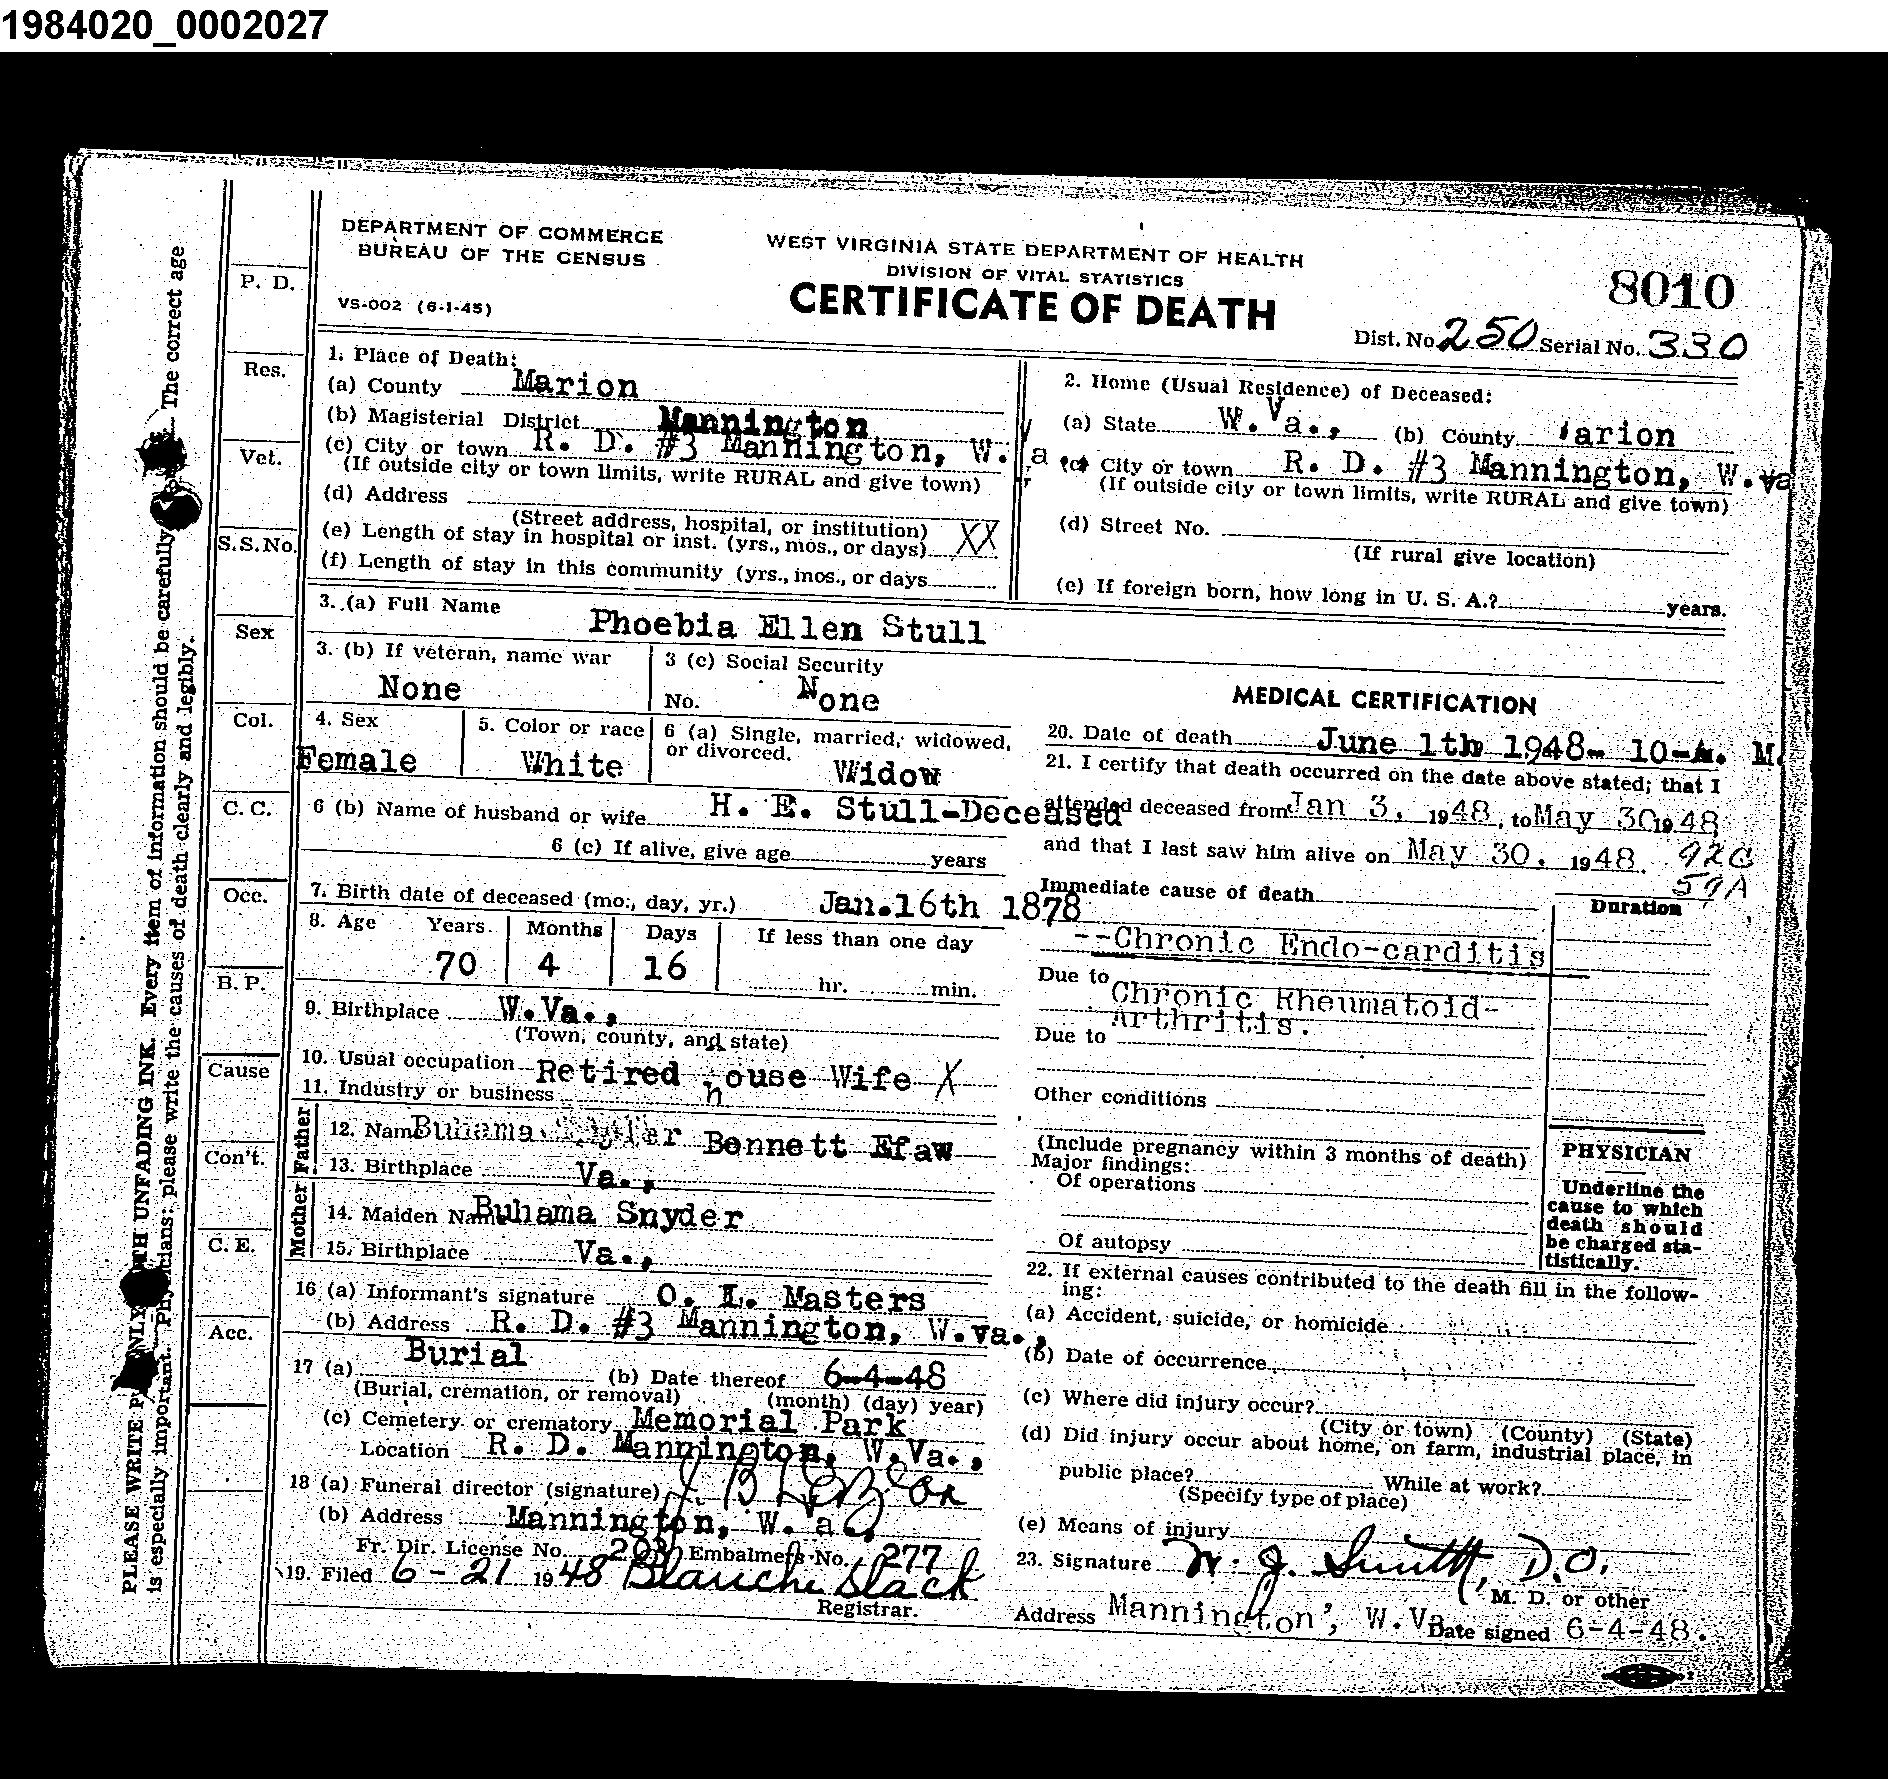 1984020_0002027
DEPARTMENT OF COMMERCE
BUREAU OF THE CENSUS
VS-002 (6-1-45)
WEST VIRGINIA STATE DEPARTMENT OF HEALTH
DIVISION OF VITAL STATISTICS
CERTIFICATE OF DEATH
8010
Dist. No. 250 Serial No. 330
1. Place of Death:
(a) County Marion
(b) Magisterial District Mannington
(c) City or town R. D. #3 Mannington, W. Va
(If outside city or town limits, write RURAL and give town)
(d) Address
(Street address, hospital, or institution)
(e) Length of stay in hospital or inst. (yrs., mos., or days) XX
(f) Length of stay in this community (yrs., mos., or days
2. Home (Usual Residence) of Deceased:
(a) State W. Va., (b) County arion
(c) City or town R. D. #3 Mannington, W.va
(If outside city or town limits, write RURAL and give town)
(d) Street No.
(If rural give location)
(e) If foreign born, how long in U. S. A.? years.
3. (a) Full Name Phoebia Ellen Stull
3. (b) If veteran, name war
None
3 (c) Social Security
No. None
4. Sex
Female
5. Color or race
White
6 (a) Single, married, widowed,
or divorced.
Widow
6 (b) Name of husband or wife H. E. Stull-Deceased
6 (c) If alive, give age years
7. Birth date of deceased (mo., day, yr.) Jan.16th 1878
8. Age Years Months Days If less than one day
70 4 16 hr. min.
9. Birthplace W.Va.,
(Town, county, and state)
10. Usual occupation Retired house Wife X
11. Industry or business
Father
12. Name Bennett Efaw
13. Birthplace Va.,
Mother
14. Maiden Name Buhama Snyder
15. Birthplace Va.,
16 (a) Informant's signature O. L. Masters
(b) Address R. D. #3 Mannington, W.va.,
17 (a) Burial (b) Date thereof 6-4-48
(Burial, cremation, or removal) (month) (day) year)
(c) Cemetery or crematory Memorial Park
Location R. D. Mannington, W.Va.,
18 (a) Funeral director (signature)
(b) Address Mannington, W. a.,
Fr. Dir. License No. Embalmer's No. 277
19. Filed 6-21 1948 Blanche Slack
Registrar.
MEDICAL CERTIFICATION
20. Date of death June 1th 1948- 10-A. M.
21. I certify that death occurred on the date above stated; that I
attended deceased from Jan 3, 1948, to May 30 1948
and that I last saw him alive on May 30. 1948. 92C
59A
Immediate cause of death
Duration
--Chronic Endo-carditis
Due to Chronic Rheumatoid-
Arthritis.
Due to
Other conditions
(Include pregnancy within 3 months of death)
Major findings:
Of operations
Of autopsy
PHYSICIAN
Underline the
cause to which
death should
be charged sta-
tistically.
22. If external causes contributed to the death fill in the follow-
ing:
(a) Accident, suicide, or homicide
(b) Date of occurrence
(c) Where did injury occur?
(City or town) (County) (State)
(d) Did injury occur about home, on farm, industrial place, in
public place? While at work?
(Specify type of place)
(e) Means of injury
23. Signature W. J. Smith, D.O.
M. D. or other
Address Mannington, W.Va Date signed 6-4-48.
P. D.
Res.
Vet.
S.S.No.
Sex
Col.
C. C.
Occ.
B. P.
Cause
Con't.
C. E.
Acc.
PLEASE WRITE UNFADING INK. Every item of information should be carefully The correct age
is especially important. Physicians: please write the causes of death clearly and legibly.